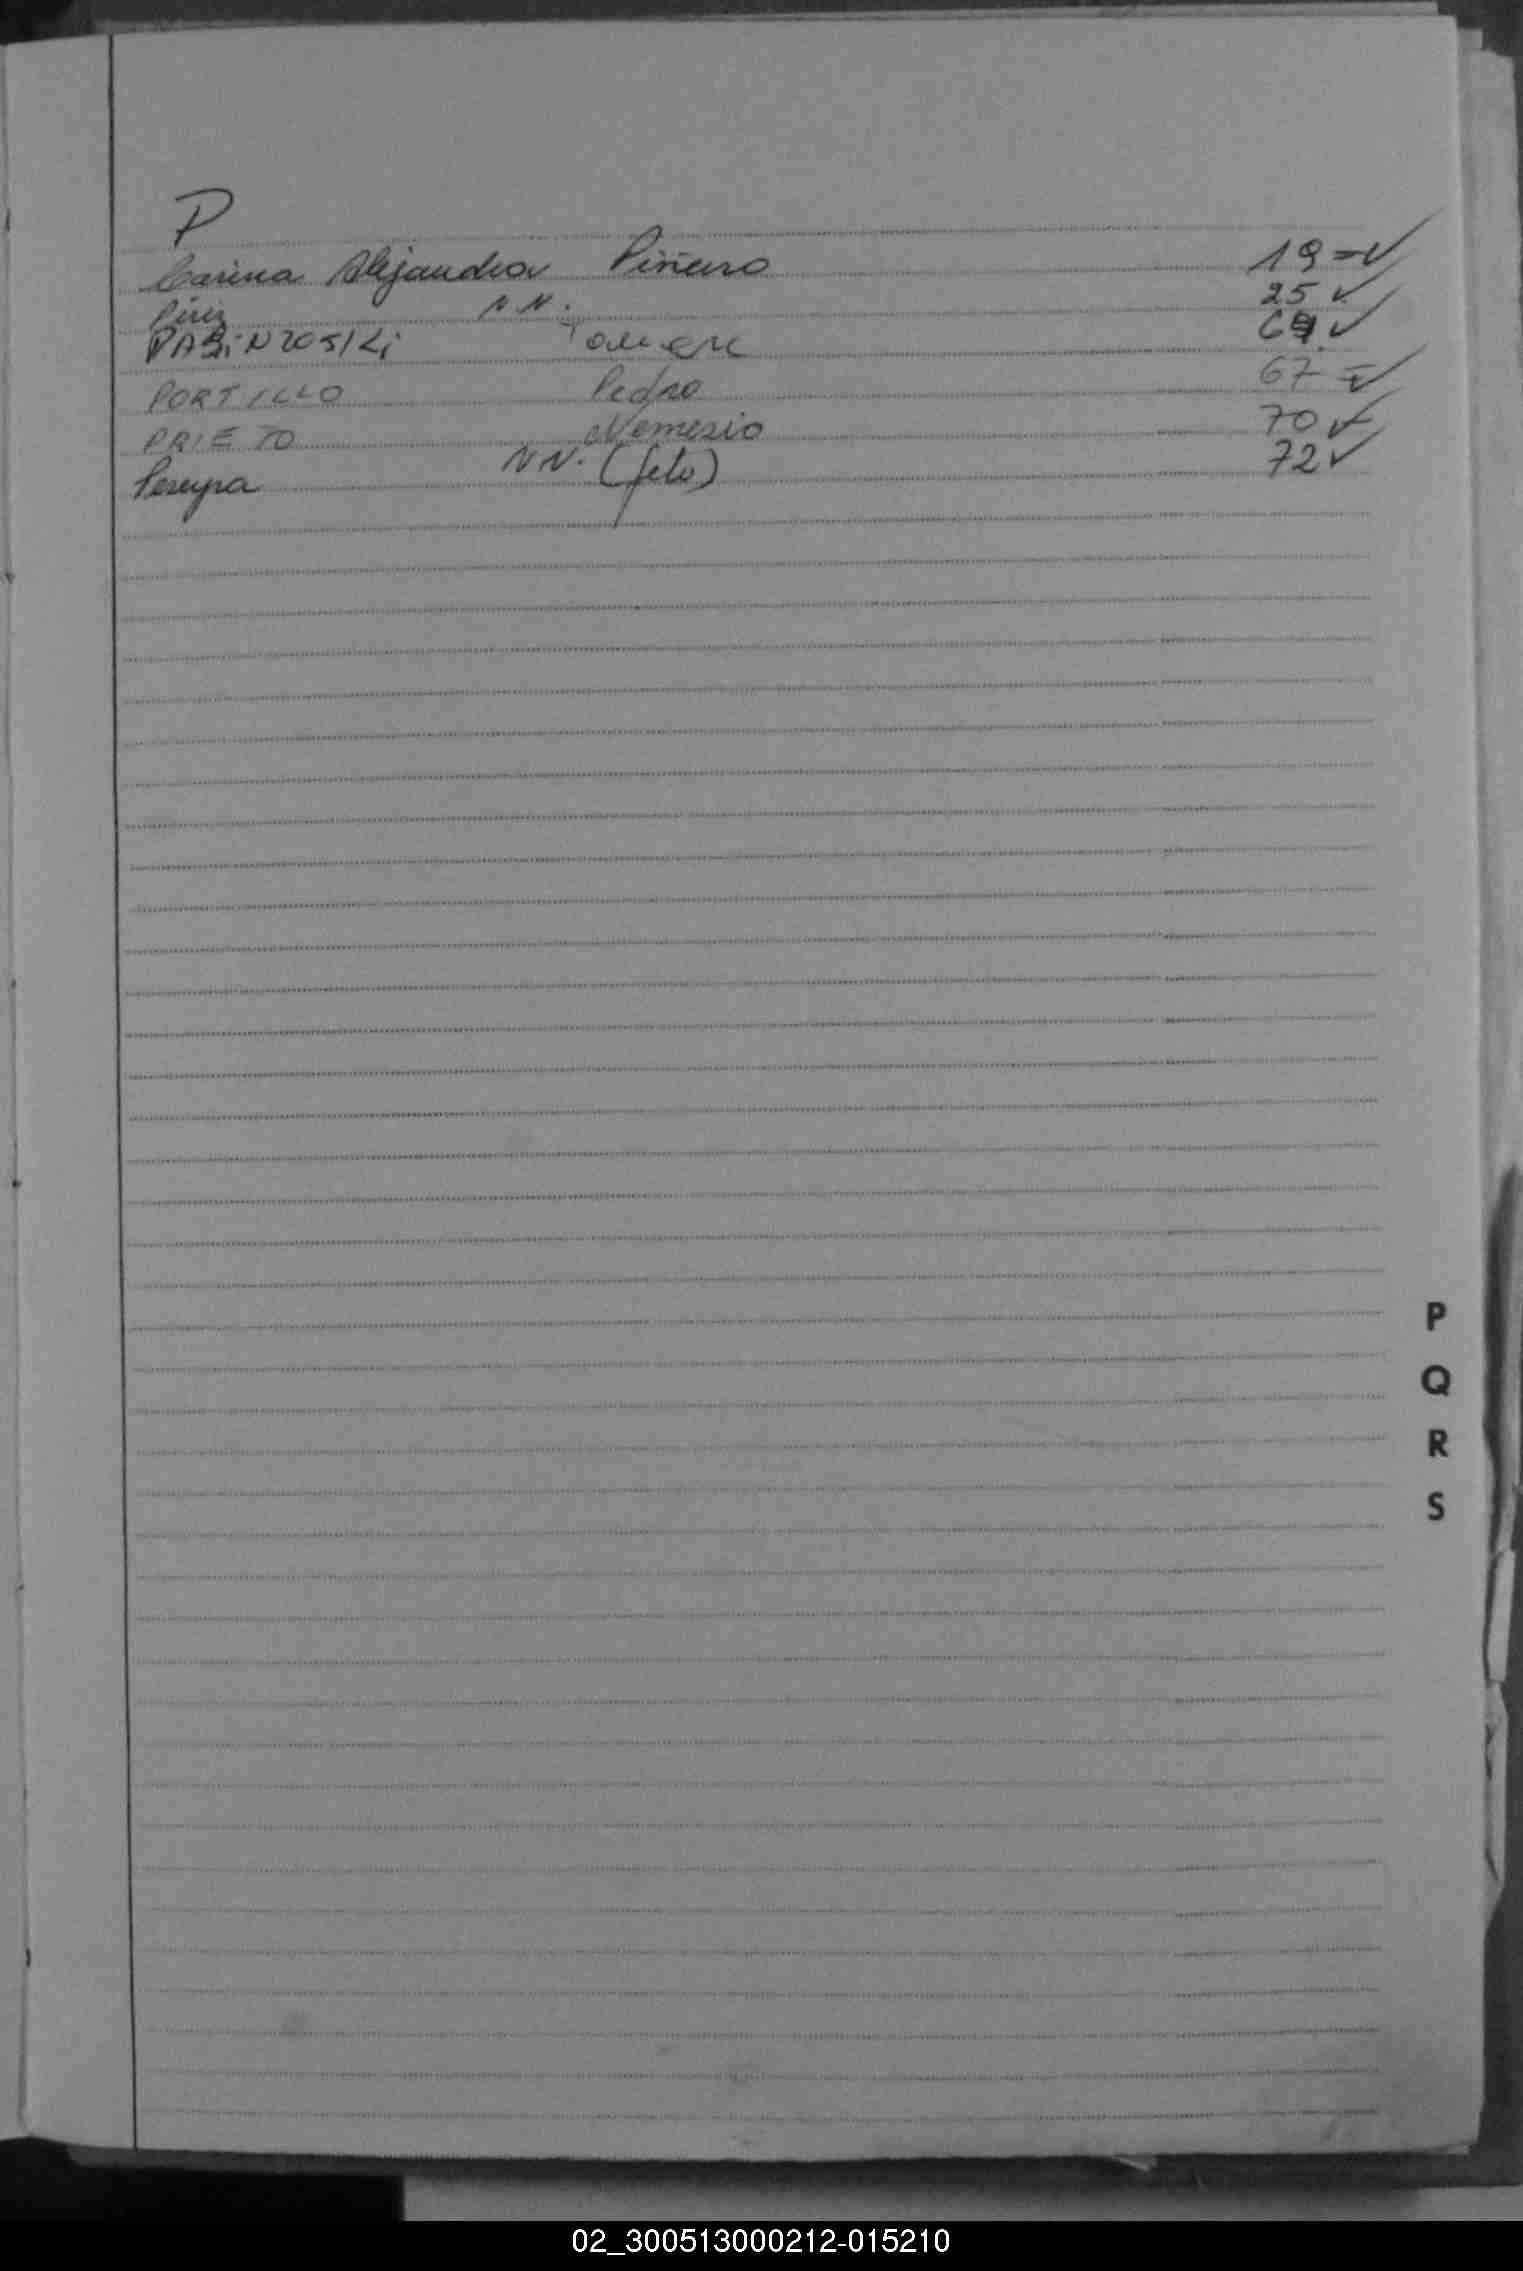 P
Carina Alejandra Piñeiro 19 = ✓
Pérez N.N. 25 ✓
✓
PORTILLO Pedro 67 = ✓
PRIETO Nemesio 70 ✓
Pereyra N.N. (feto) 72 ✓
P
Q
R
S
02_300513000212-015210